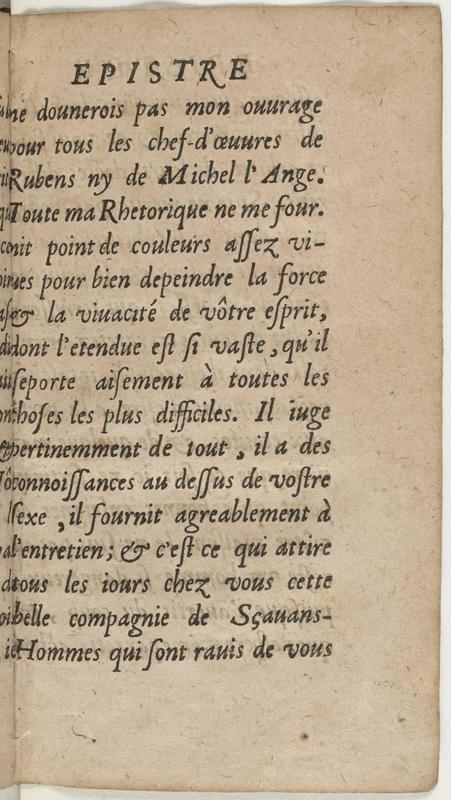 EPISTRE
ne dounerois pas mon ouurage
pour tous les chef-d'œuures de
Rubens ny de Michel l'Ange.
Toute ma Rhetorique ne me four.
nit point de couleurs aſſez vi-
ues pour bien depeindre la force
& la viuacité de vôtre eſprit,
dont l'etendue eſt ſi vaſte, qu'il
ſeporte aiſement à toutes les
choſes les plus difficiles. Il iuge
pertinemment de tout, il a des
connoiſſances au deſſus de voſtre
ſexe, il fournit agreablement à
l'entretien; & c'eſt ce qui attire
tous les iours chez vous cette
belle compagnie de Sçauans-
Hommes qui ſont rauis de vous